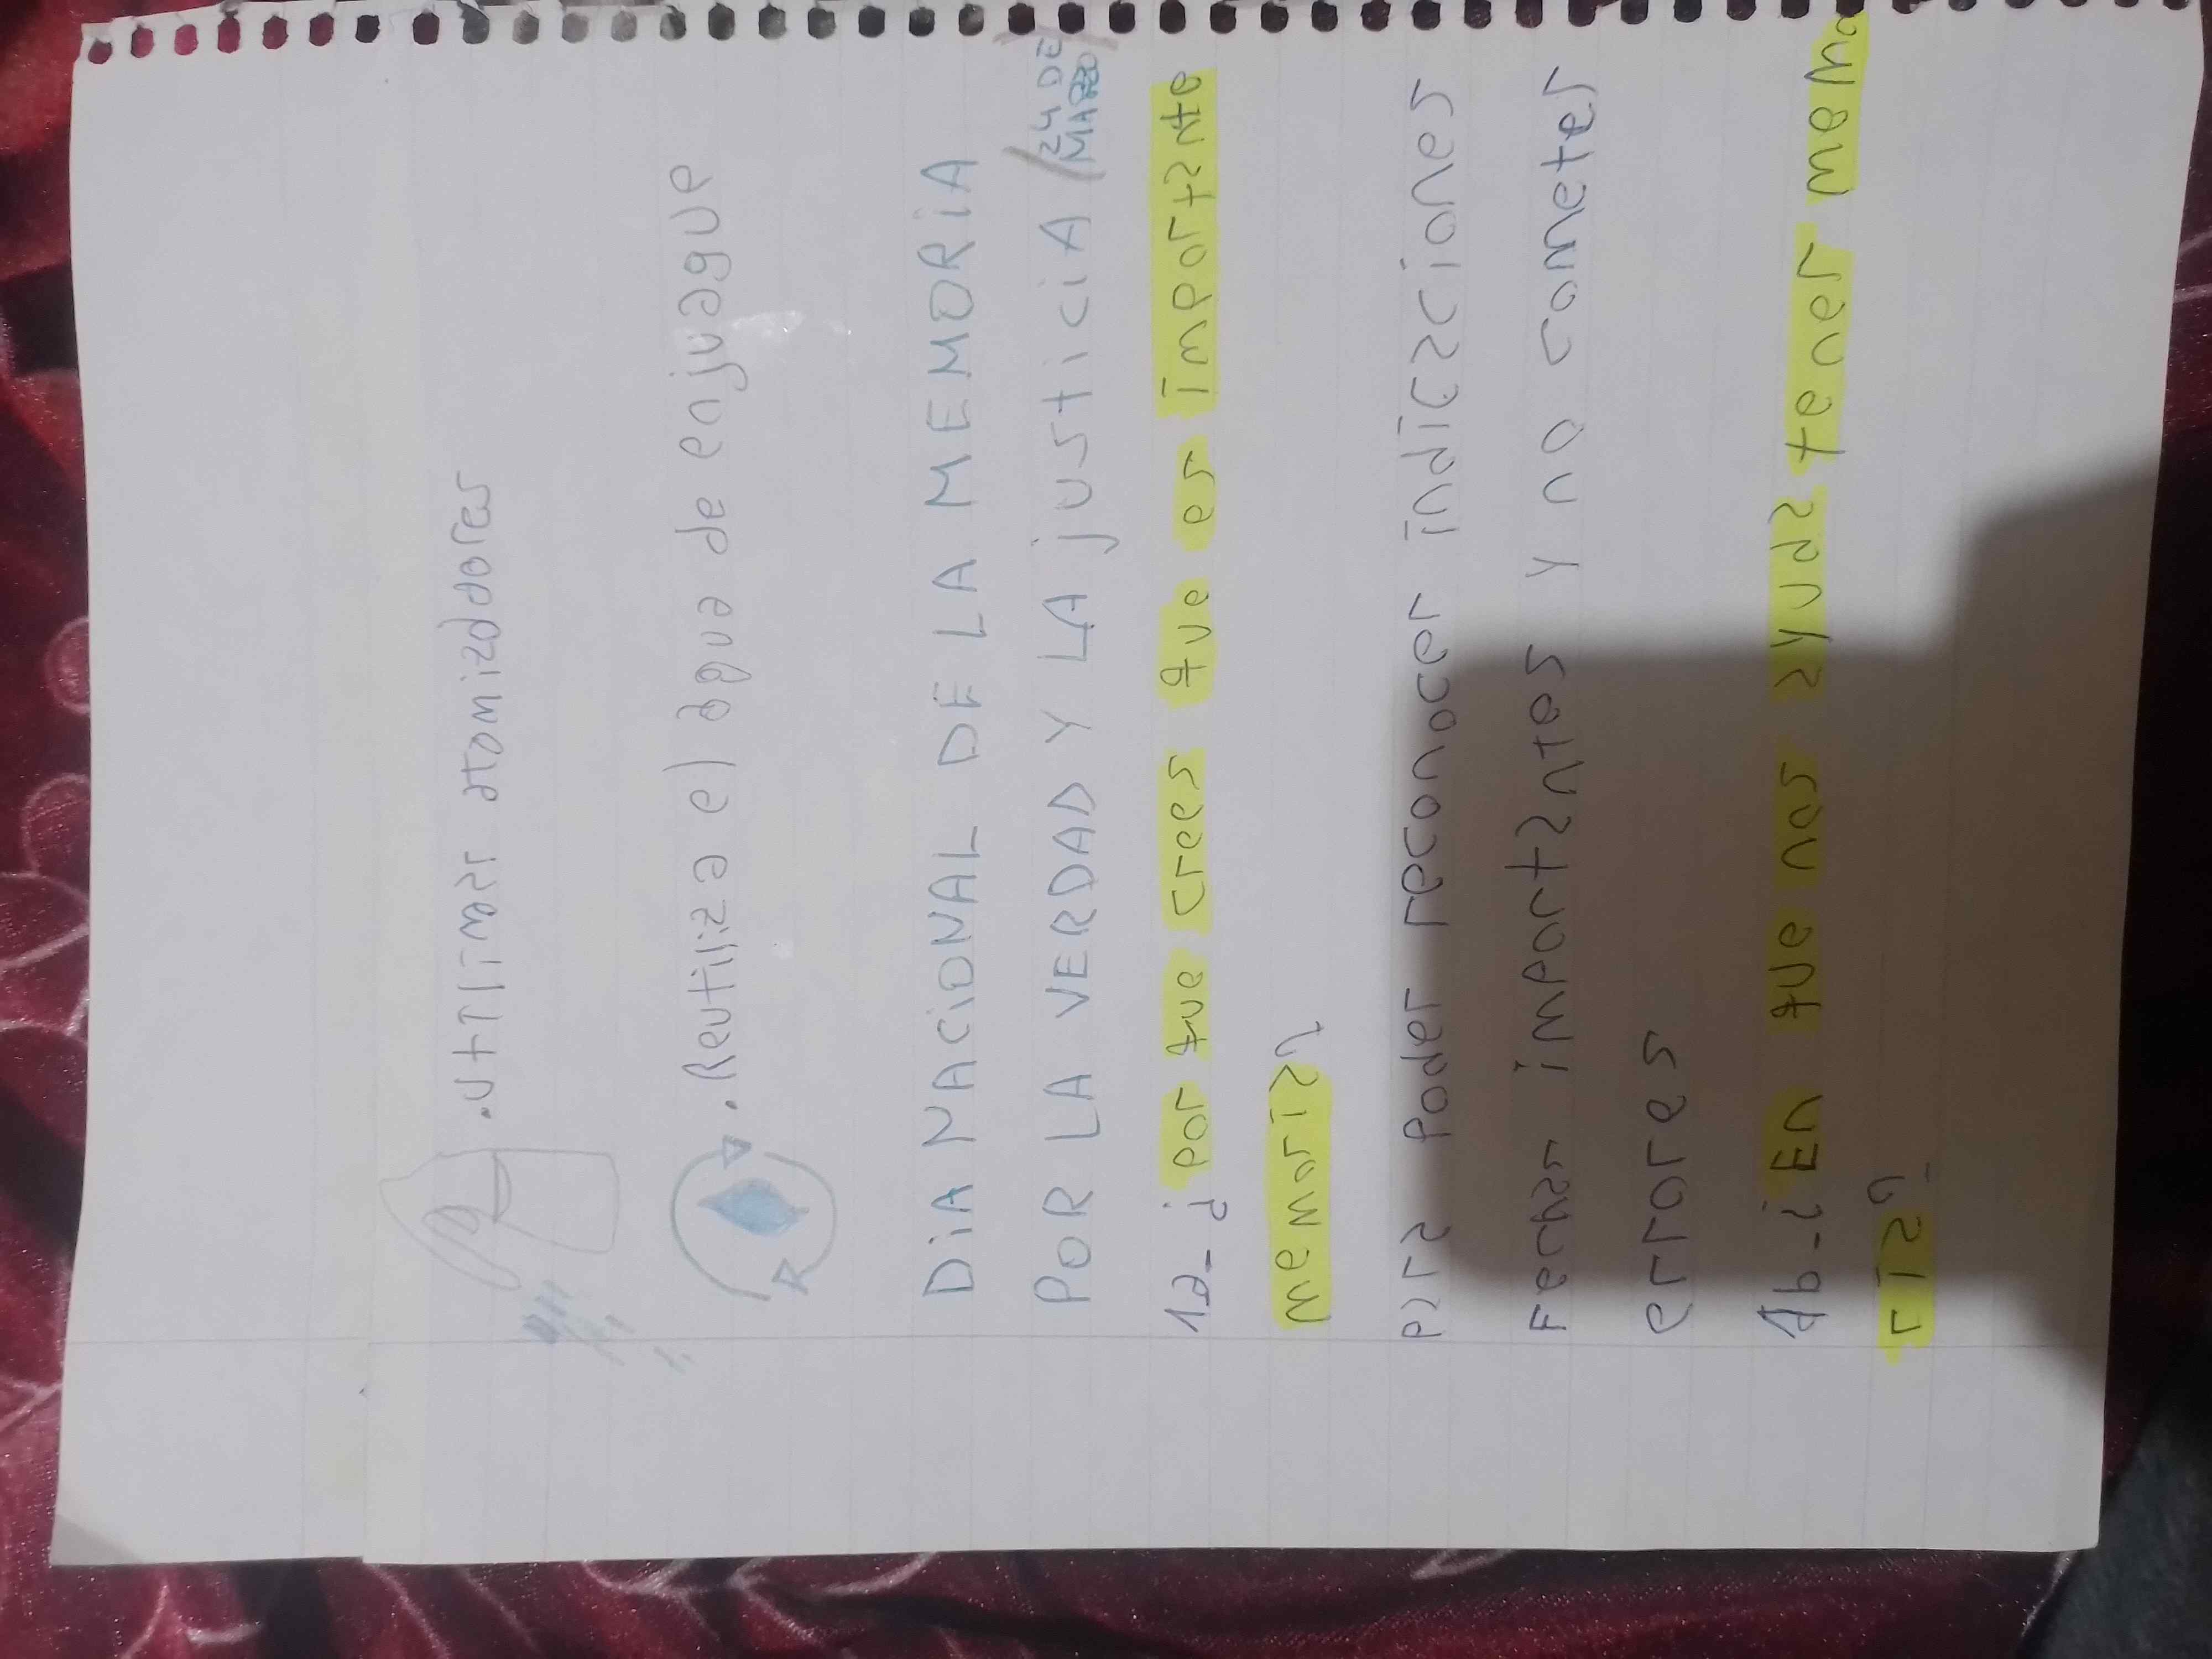 . utilizar atomizadores
. Reutiliza el agua de enjuague
DiA NACiONAL DE LA MEMORiA
POR LA VERDAD Y LA jUSTiCiA (24 DE MARZO)
1a-¿por que crees que es importante
memoria?
para poder reconocer indicaciones
Fechas importantes y no cometer
errores
1b-¿En que nos ayuda tener memo
ria?